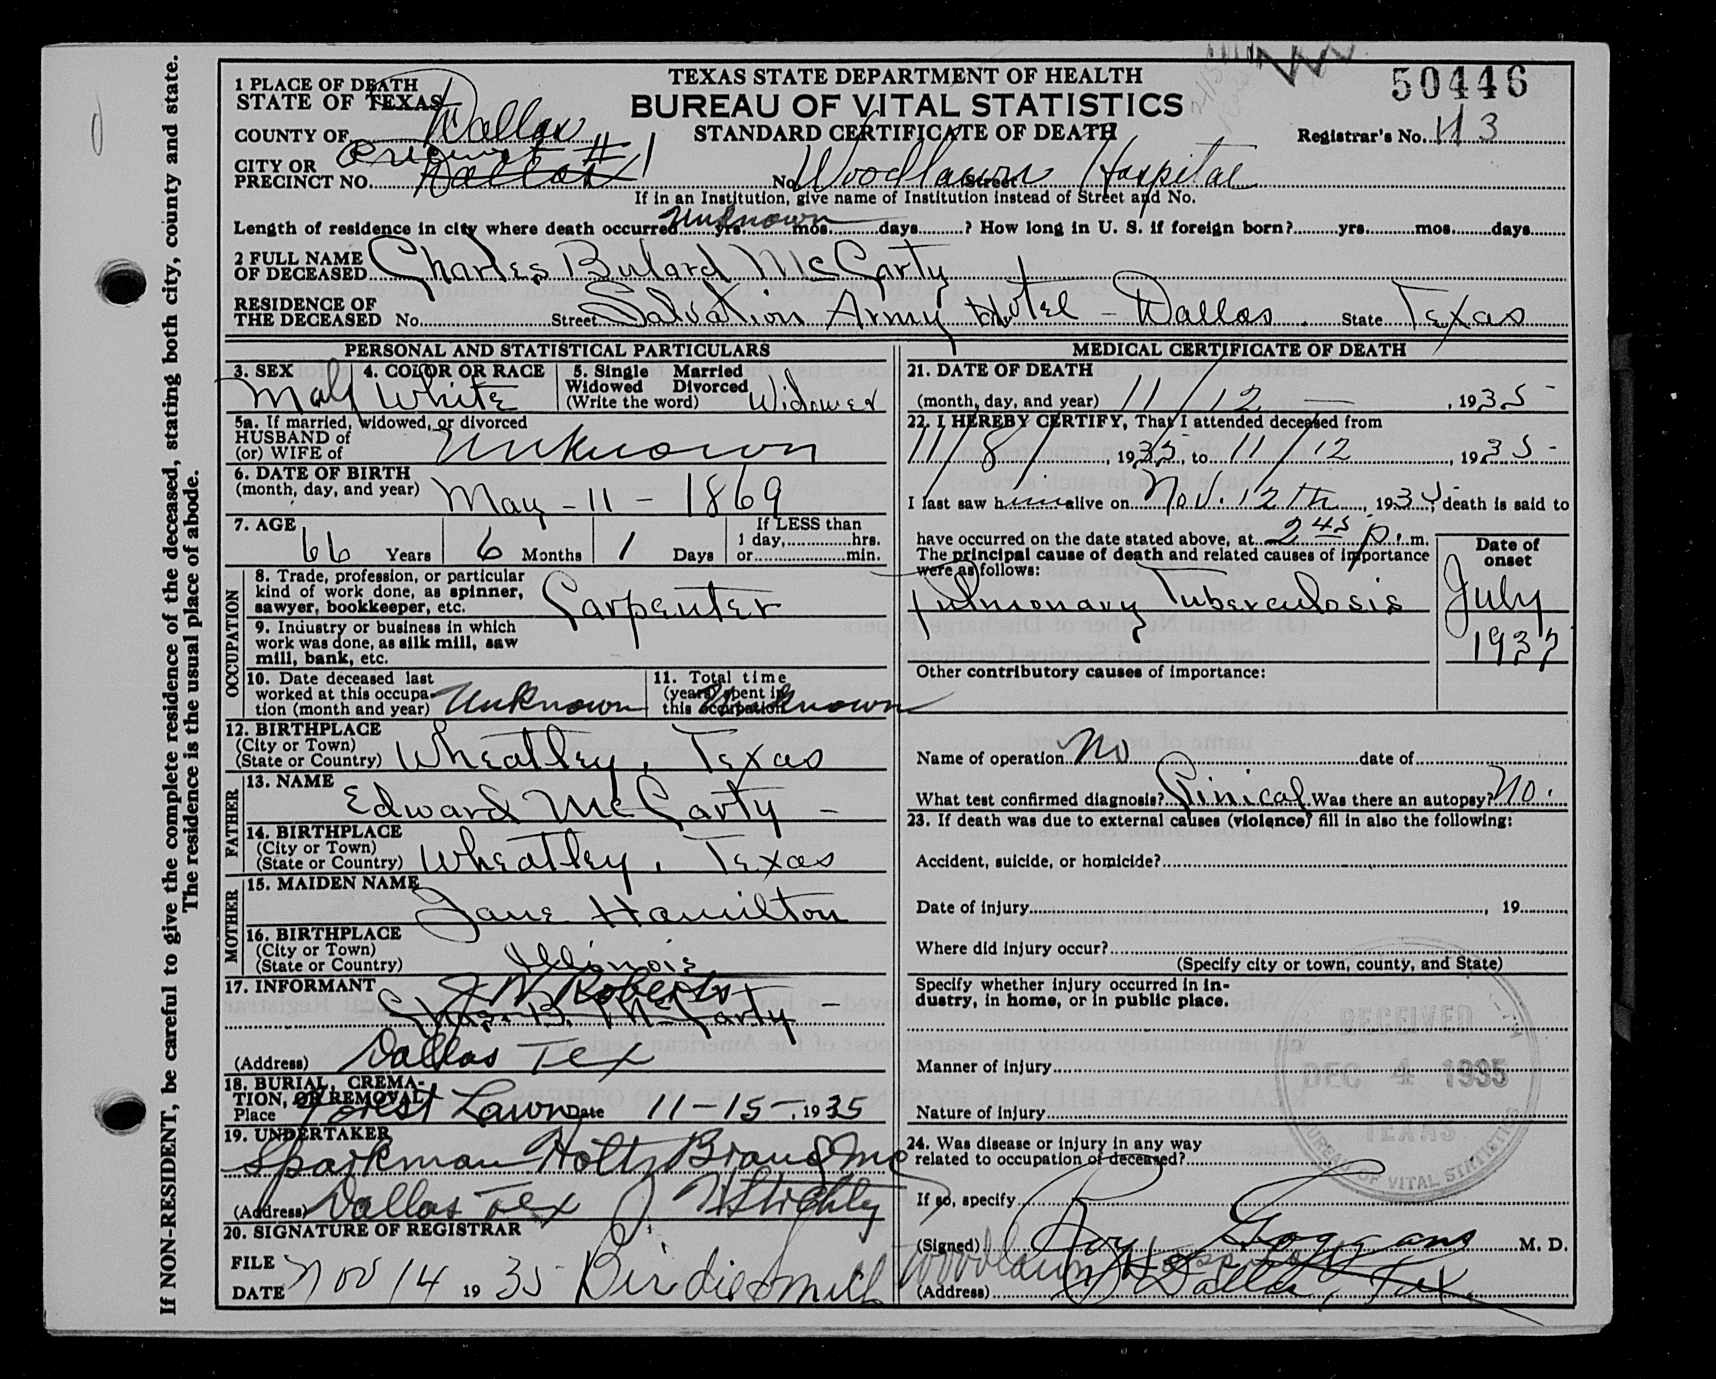 If NON-RESIDENT, be careful to give the complete residence of the deceased, stating both city, county and state.
The residence is the usual place of abode.
TEXAS STATE DEPARTMENT OF HEALTH
BUREAU OF VITAL STATISTICS
STANDARD CERTIFICATE OF DEATH
50446
Registrar's No. 113
1 PLACE OF DEATH
STATE OF TEXAS
COUNTY OF Dallas
CITY OR
PRECINCT NO. Precinct #1 Dallas No. Woodlawn Hospital Street
If in an Institution, give name of Institution instead of Street and No.
Length of residence in city where death occurred Unknown yrs. mos. days ? How long in U. S. if foreign born? yrs. mos. days
2 FULL NAME
OF DECEASED Charles Bulard McCarty
RESIDENCE OF
THE DECEASED No. Street Salvation Army Hotel - City Dallas. State Texas
PERSONAL AND STATISTICAL PARTICULARS
3. SEX Male
4. COLOR OR RACE White
5. Single Married
Widowed Divorced
(Write the word) Widowed
5a. If married, widowed, or divorced
HUSBAND of
(or) WIFE of Unknown
6. DATE OF BIRTH
(month, day, and year) May - 11 - 1869
7. AGE 66 Years 6 Months 1 Days
If LESS than
1 day, hrs.
or min.
OCCUPATION
8. Trade, profession, or particular
kind of work done, as spinner,
sawyer, bookkeeper, etc. Carpenter
9. Industry or business in which
work was done, as silk mill, saw
mill, bank, etc.
10. Date deceased last
worked at this occupa-
tion (month and year) Unknown
11. Total time
(years) spent in
this occupation Unknown
12. BIRTHPLACE
(City or Town)
(State or Country) Wheatley, Texas
FATHER
13. NAME Edward McCarty -
14. BIRTHPLACE
(City or Town)
(State or Country) Wheatley, Texas
MOTHER
15. MAIDEN NAME Jane Hamilton
16. BIRTHPLACE
(City or Town)
(State or Country) Illinois
17. INFORMANT J W Roberts
Chas. B. McCarty -
(Address) Dallas Tex
18. BURIAL, CREMA-
TION, OR REMOVAL
Place Forest Lawn Date 11-15-, 1935
19. UNDERTAKER
Sparkman Holtz Brand Inc
(Address) Dallas Tex
20. SIGNATURE OF REGISTRAR
FILE
DATE Nov 14 19 35 Birdie Smith
MEDICAL CERTIFICATE OF DEATH
21. DATE OF DEATH
(month, day, and year) 11/12 - , 1935 -
22. I HEREBY CERTIFY, That I attended deceased from
11/8/, 1935, to 11/12, 1935 -
I last saw him alive on Nov. 12th, 1935, death is said to
have occurred on the date stated above, at 2 45 p.m.
The principal cause of death and related causes of importance
were as follows:
Date of
onset
Pulmonary Tuberculosis July
1933
Other contributory causes of importance:
Name of operation No date of
What test confirmed diagnosis? Clinical Was there an autopsy? No.
23. If death was due to external causes (violence) fill in also the following:
Accident, suicide, or homicide?
Date of injury , 19
Where did injury occur?
(Specify city or town, county, and State)
Specify whether injury occurred in in-
dustry, in home, or in public place.
Manner of injury
Nature of injury
RECEIVED
DEC 4 1935
TEXAS
BUREAU OF VITAL STATISTICS
24. Was disease or injury in any way
related to occupation of deceased?
If so, specify
(Signed) Roy Goggans M. D.
Woodlawn Hospital
(Address) Dallas, Tex.